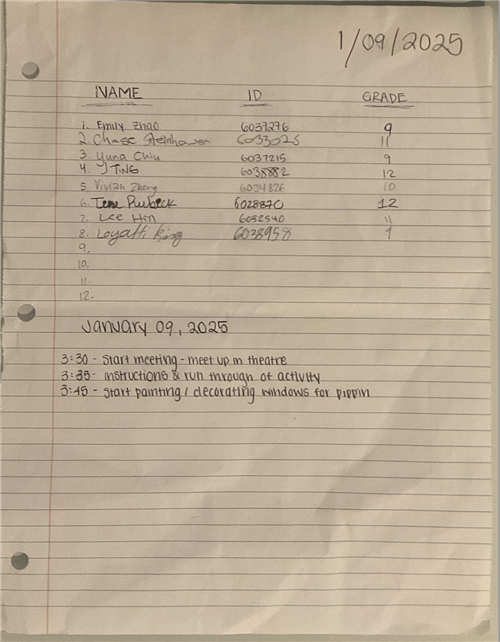 1/09/2025
NAME ID GRADE
1. Emily Zhao 6037276 9
2. Chase 11
3. Yuna Chiu 6037215 9
4. J TING 6038882 12
5. Vivian Zhong 6034826 10
6. 6028870 12
7. Lee Hin 6032540 11
8. Loyalti King 6038958 1
9.
10.
11.
12.
January 09, 2025
3:30 - Start meeting - meet up in theatre
3:35 - instructions & run through of activity
3:45 - Start painting / decorating windows for pippin